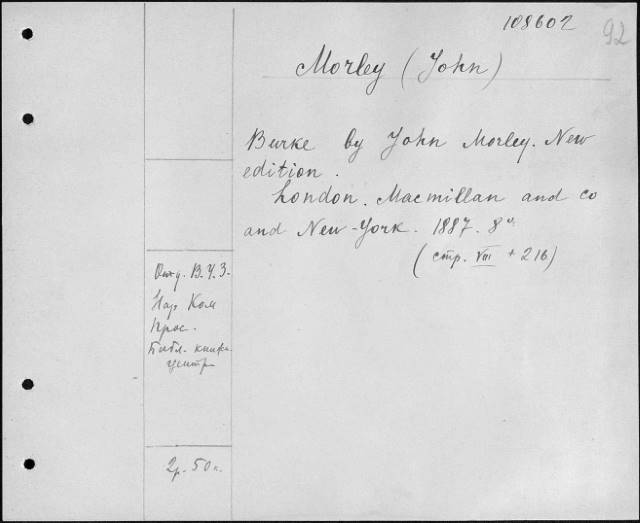 108602
92
Morley (John)
Burke by John Morley. New
edition.
London. Macmillan and co
and New-York. 1887. 8º
(стр. VIII + 216)
Отд. В.У.З.
Нар Ком
Прос.
Библ. книжн.
центр
2р. 50к.